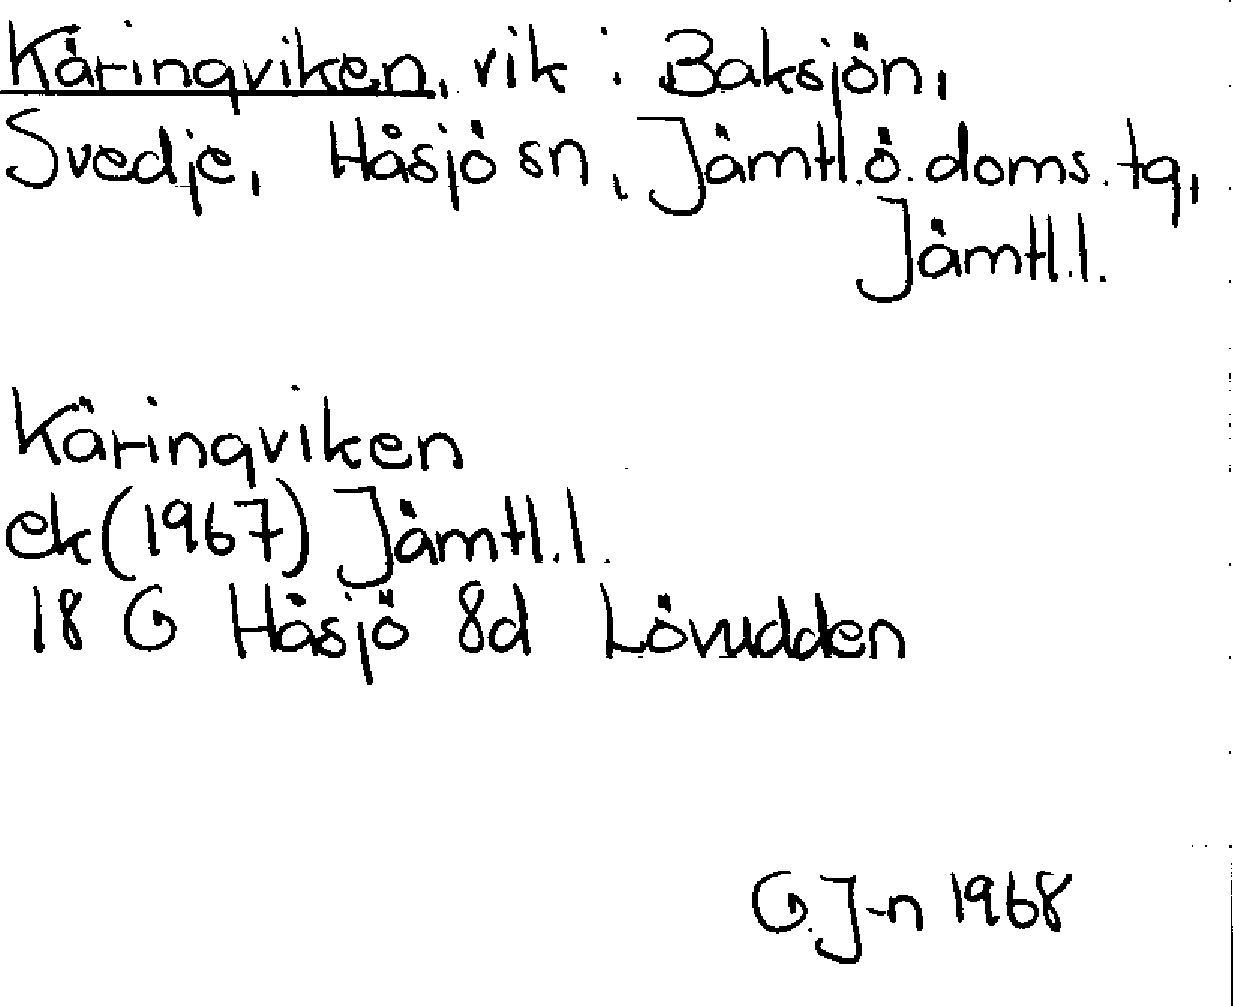 Käringviken, vik i Baksjön,
Svedje, Håsjö sn, Jämtl.ö.doms.tg,
Jämtl.l.
Käringviken
ek(1967) Jämtl.l.
18 G Håsjö 8d Lövudden
G.J-n 1968